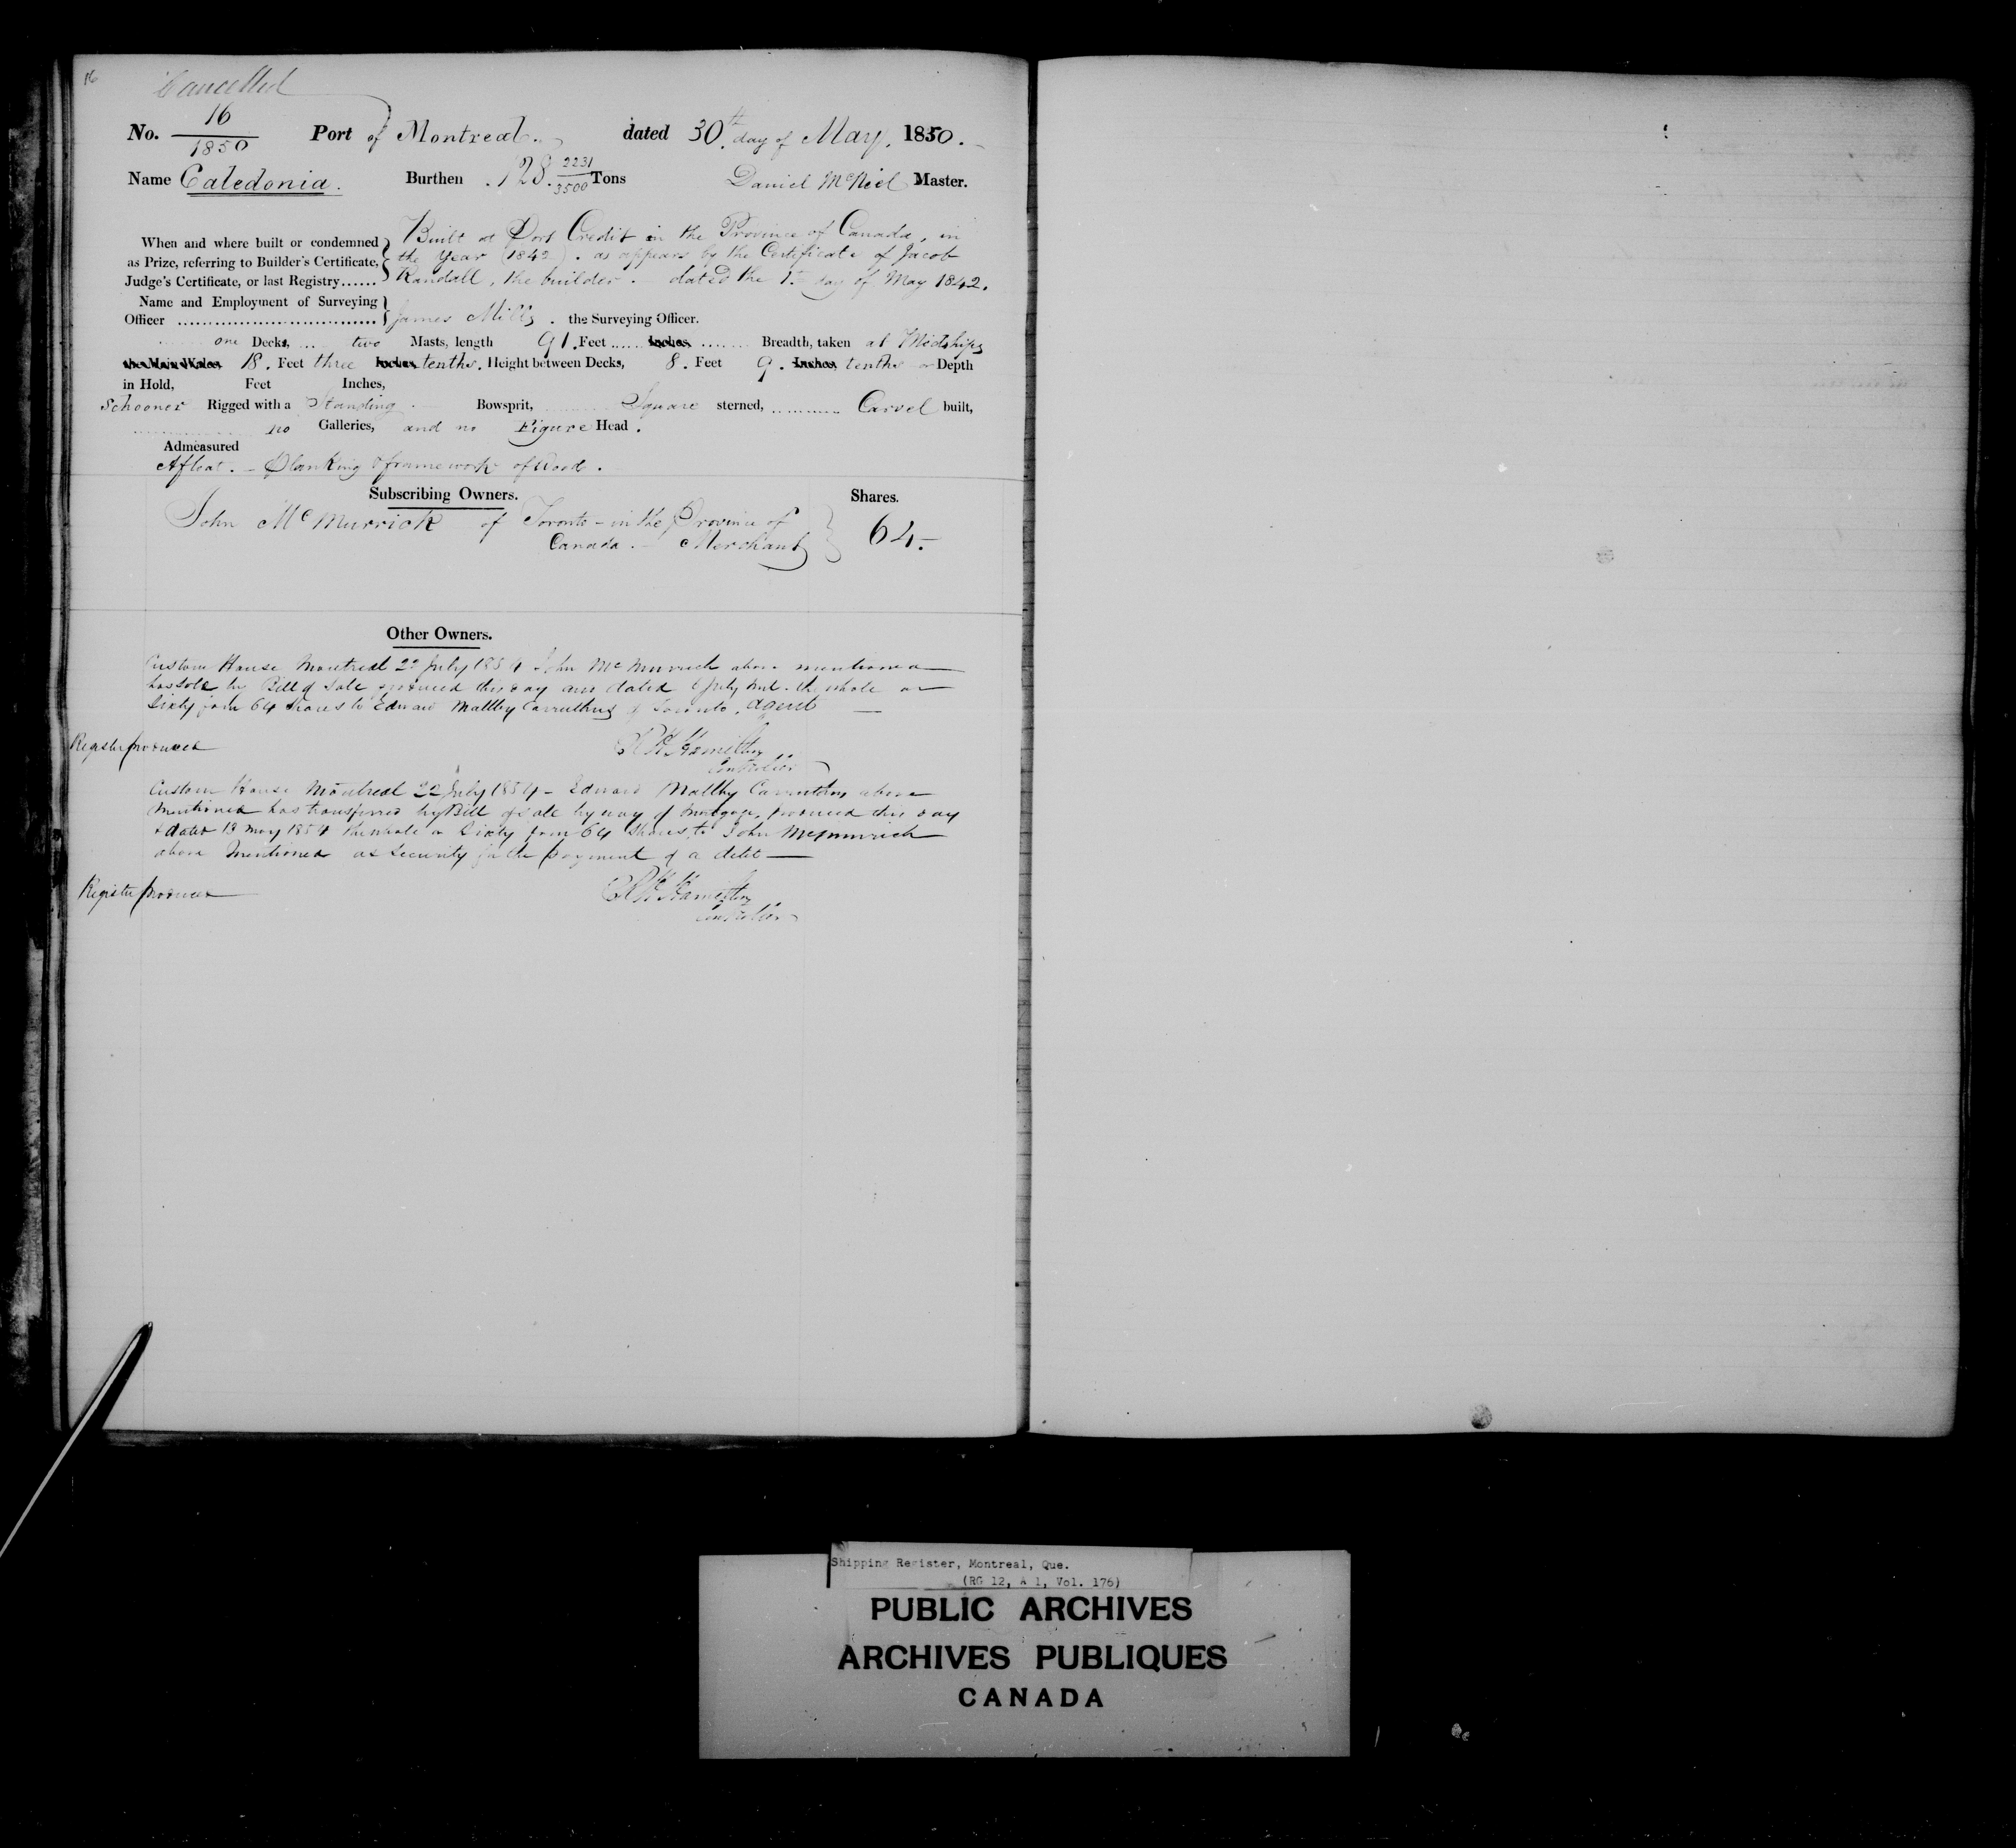 16
Cancelled
No. 16/1850 Port of Montreal. dated 30th day of May. 1850.
Name Caledonia. Burthen 128. 2231/3500 Tons Daniel McNeil Master.
When and where built or condemned
as Prize, referring to Builder's Certificate,
Judge's Certificate, or last Registry......
Built at Port Credit in the Province of Canada, in
the Year (1842). as appears by the Certificate of Jacob
Randall, the builder. dated the 1st day of May 1842.
Name and Employment of Surveying
Officer .............................. James Mills. the Surveying Officer.
one Decks, .... two Masts, length 91. Feet ...... Inches ........ Breadth, taken at Midships
the Main Wales 18. Feet three Inches tenths. Height between Decks, 8. Feet 9. Inches tenths Depth
in Hold, Feet Inches,
Schooner Rigged with a Standing Bowsprit, Square sterned, ........... Carvel built,
no Galleries, and no Figure Head.
Admeasured
Afloat. - Planking & framework of Wood.
Subscribing Owners. Shares.
John McMurrick of Toronto - in the Province of
Canada. - Merchant 64.-
Other Owners.
Custom House Montreal 22 July 1854 John McMurrich above mentioned
has sold by Bill of Sale produced this day and dated 6 July Inst. the whole or
Sixty four 64 Shares to Edward Maltby Carruthers of Toronto, Agent
Register produced
R H Hamilton
Controller
Custom House Montreal 22 July 1854 - Edward Maltby Carruthers above
mentioned has transferred by Bill of Sale by way of mortgage, produced this day
& dated 13 May 1854 the whole or Sixty four 64 Shares, to John McMurrich
above mentioned as Security for the payment of a debt
Register produced
R H Hamilton
Controller
Shipping Register, Montreal, Que.
(RG 12, A 1, Vol. 176)
PUBLIC ARCHIVES
ARCHIVES PUBLIQUES
CANADA